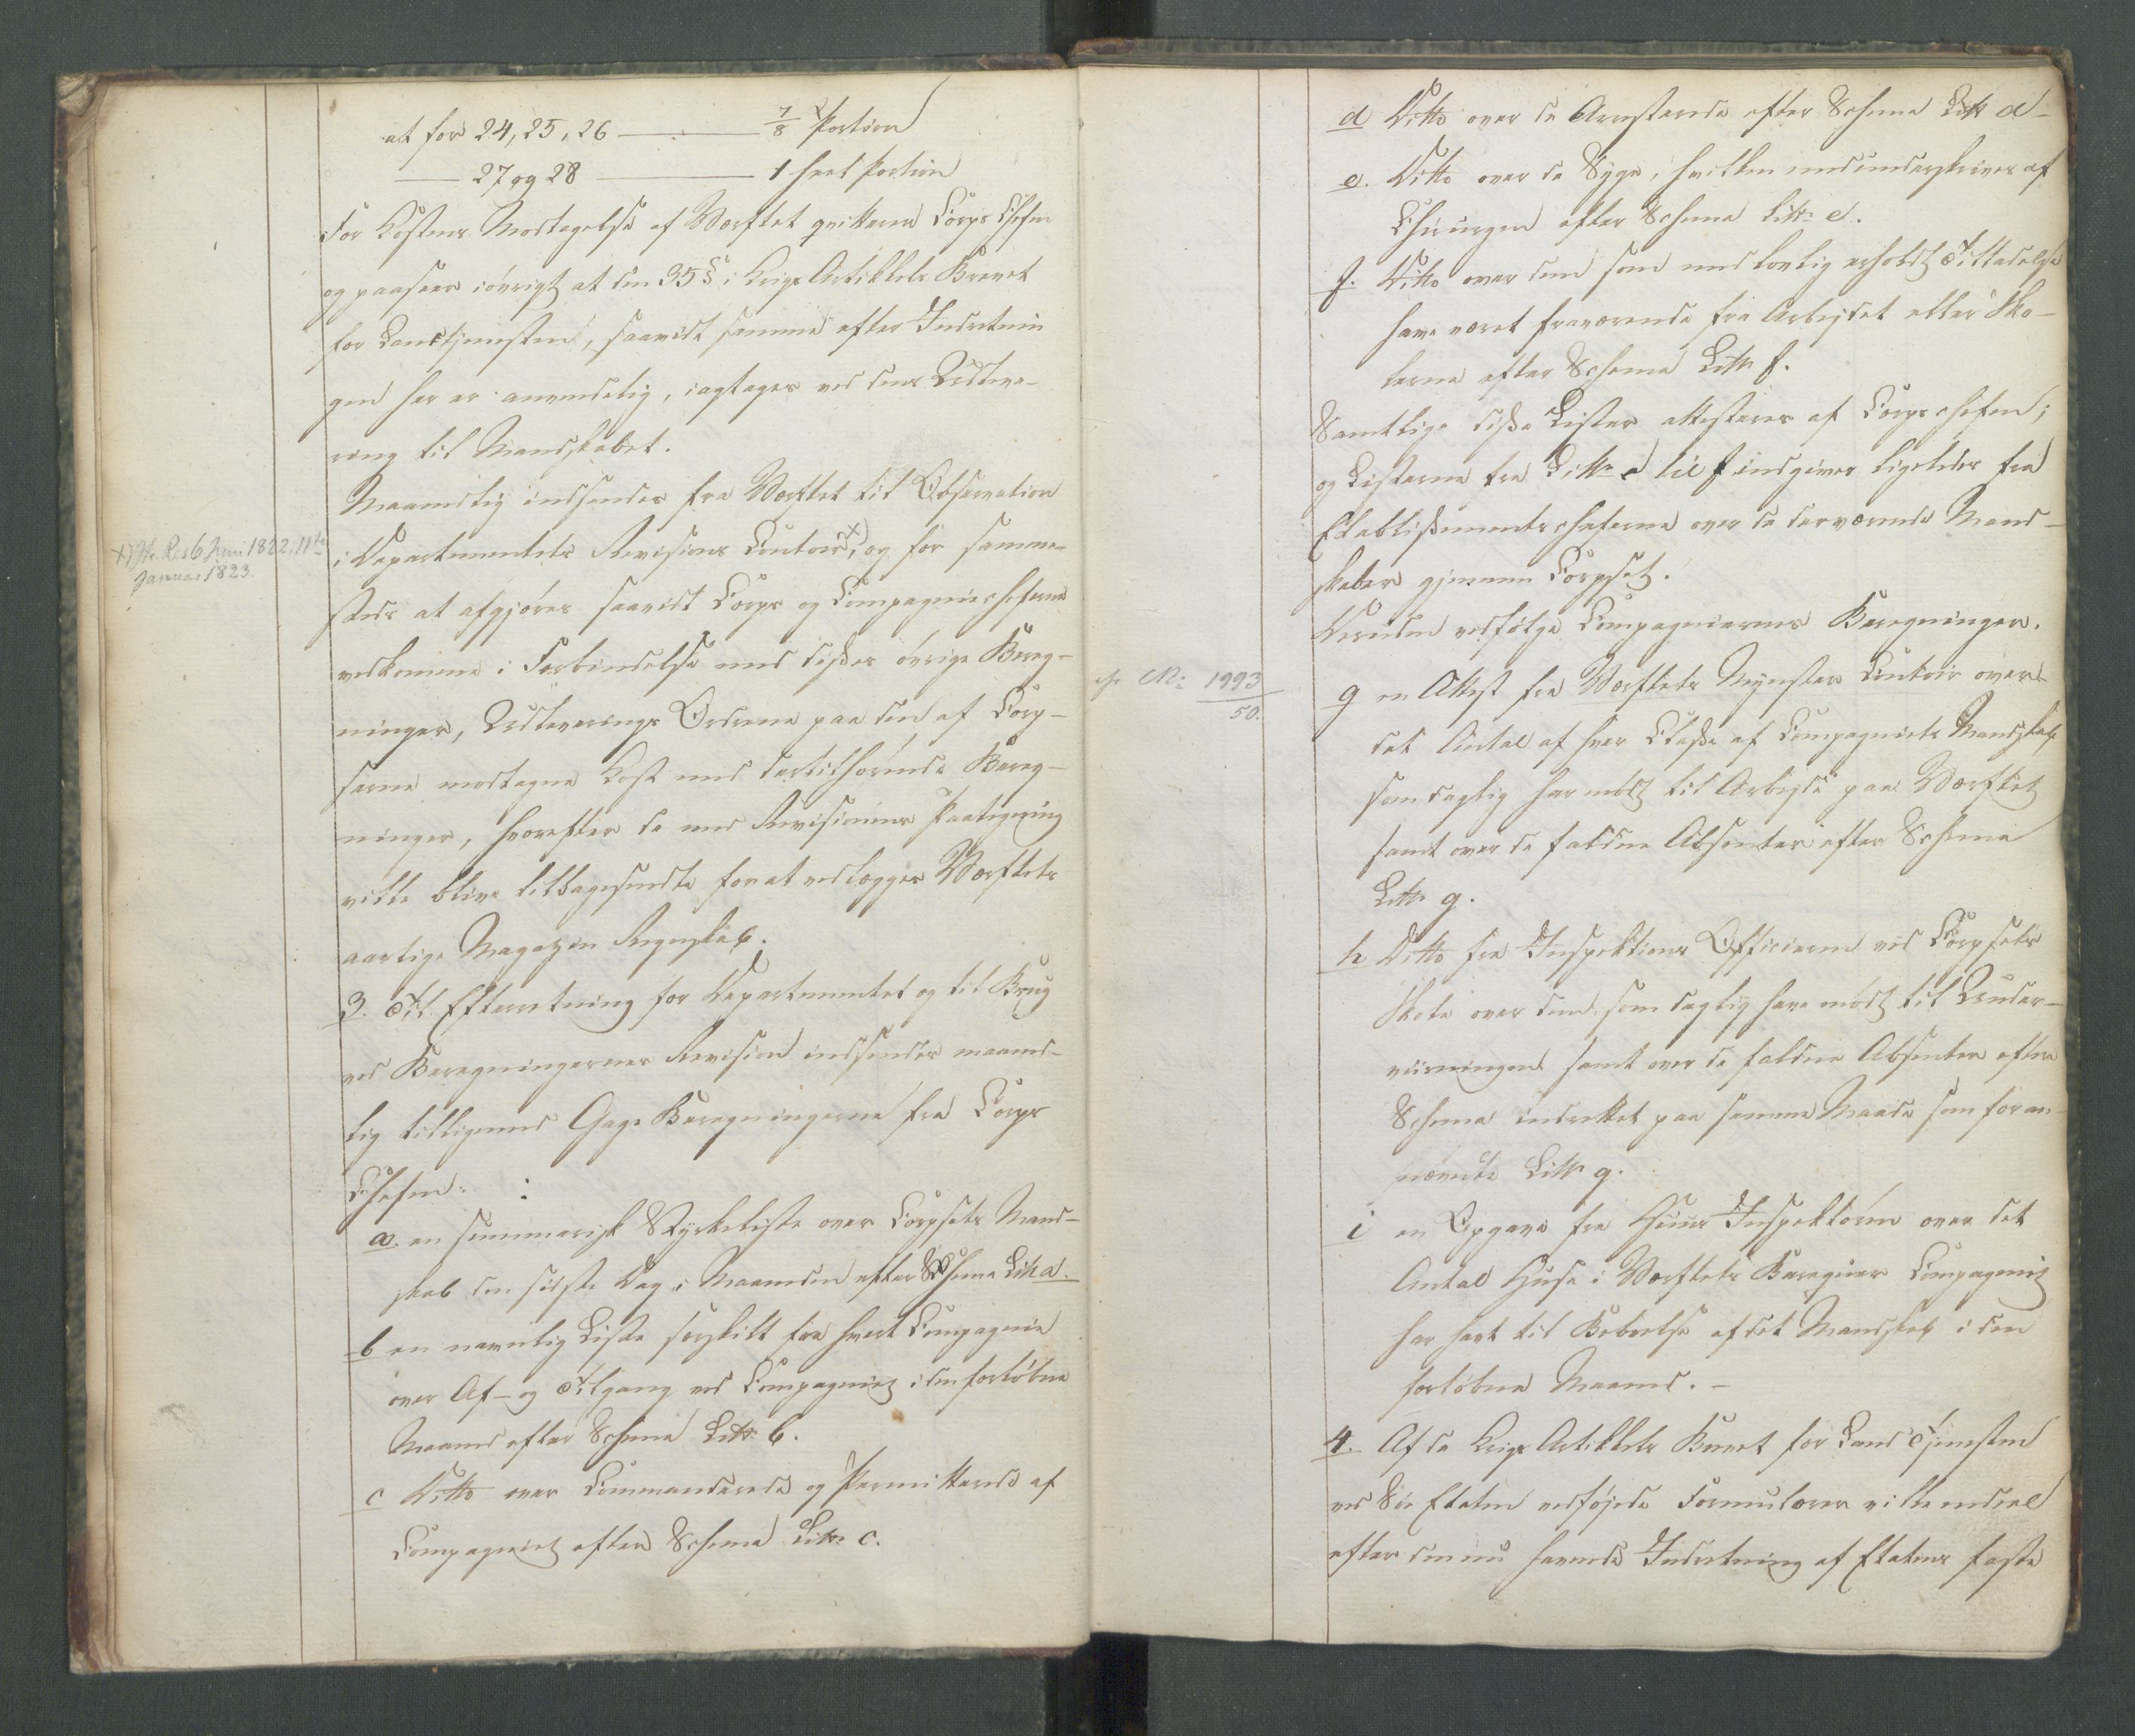 at for 24, 25, 26 — 7/8 Portion
— 27 og 28 — 1 heel Portion
For Kostens Modtagelse af Værftet qvitterer Corps Chefen
og paaseer iøvrigt at den 35 § i Krigs Artikkels Brevet
for Landtjenesten, saavidt samme efter Indretnin
gen her er anvendelig, iagtages ved dens Udleve-
ring til Mandskabet.
Maanedlig indsendes fra Værftet til Observation
i Departementets Revisions Contoir x), og for samme-
steds at afgjøres saavidt Corps og Compagniecheferne
vedkomme i Forbindelse med disses øvrige Bereg-
x) Jfr. Res 6 Juni 1822, 11te
Januar 1823.
ninger, Udleverings Ordrene paa den af Corp-
serne modtagne Kost med dertilhørende Bereg-
ninger, hvorefter de med Revisionens Paategning
ville blive tilbagesendte for at vedlægges Værftets
aarlige Magazin Regnskab.
3. Til Efterretning for Departementet og til Brug
ved Beregningernes Revision indsendes maaned-
lig tilligemed Gage Beregningerne fra Corps
Chefen:
a. en summarisk Styrkeliste over Corpsets Mand-
skab den sidste Dag i Maaneden efter Schema Litr a.
b en navnlig Liste særskilt fra hvert Compagnie
over Af- og Tilgang ved Compagniet i den forløbne
Maaned efter Schema Litr. b.
c Ditto over Commanderede og Permitterede af
Compagniet efter Schema Litr. c.
d Ditto over de Arresterede efter Schema Litr d-
e. Ditto over de Syge, hvilken medunderskrives af
Chirurgen efter Schema Litr. e.
f. Ditto over dem som med lovlig erholdt Tilladelse
have været fraværende fra Arbejdet eller Sko-
lerne efter Schema Litr. f.
Samtlige disse Lister attesteres af Corpschefen;
og Listerne fra Litr. c til f indgives ligeledes fra
Etablissementscheferne over de derværende Mand-
skaber gjennem Corpset.
Desuden vedfølge Compagniernes Beregninger.
cfr No: 1993/50.
g en Attest fra Værftets Mynster Contoir over
det Antal af hver Classe af Compagniets Mandskab
som daglig har mødt til Arbejde paa Værftet
samt over de faldne Absenter efter Schema
Litr. g.
h Ditto fra Inspektions Officieren ved Corpsets
Skole over dem som daglig have mødt til Under-
viisningen samt over de faldne Absenter efter
Schema indrettet paa samme Maade som foran-
nævnte Litr. g.
i en Opgave fra Huus Inspektøren over det
Antal Huse i Værftets Baraquer Compagniet
har havt til Beboelse af det Mandskab i den
forløbne Maaned. -
4. Af de Krigs Artikkels Brevet for Land Tjenesten
ved Søe Etaten vedføjede Formularer ville endeel
efter den nu havende Indretning af Etatens faste